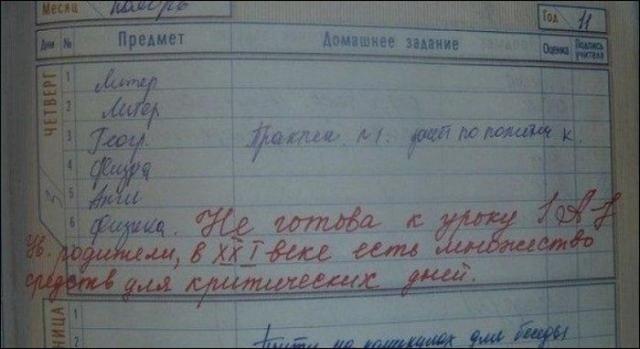 Месяц ноябрь Год 11
Дни № Предмет Домашнее задание Оценка Подпись учителя
ЧЕТВЕРГ
3
1 Литер
2 Литер
3 Геогр. Практич. №1.
4 Физра
5 Англ
6 Физика. Не готова к уроку
Ув. родители, в XXI веке есть множество
средств для критических дней.
НИЦА
1
2 на каникулах для беседы